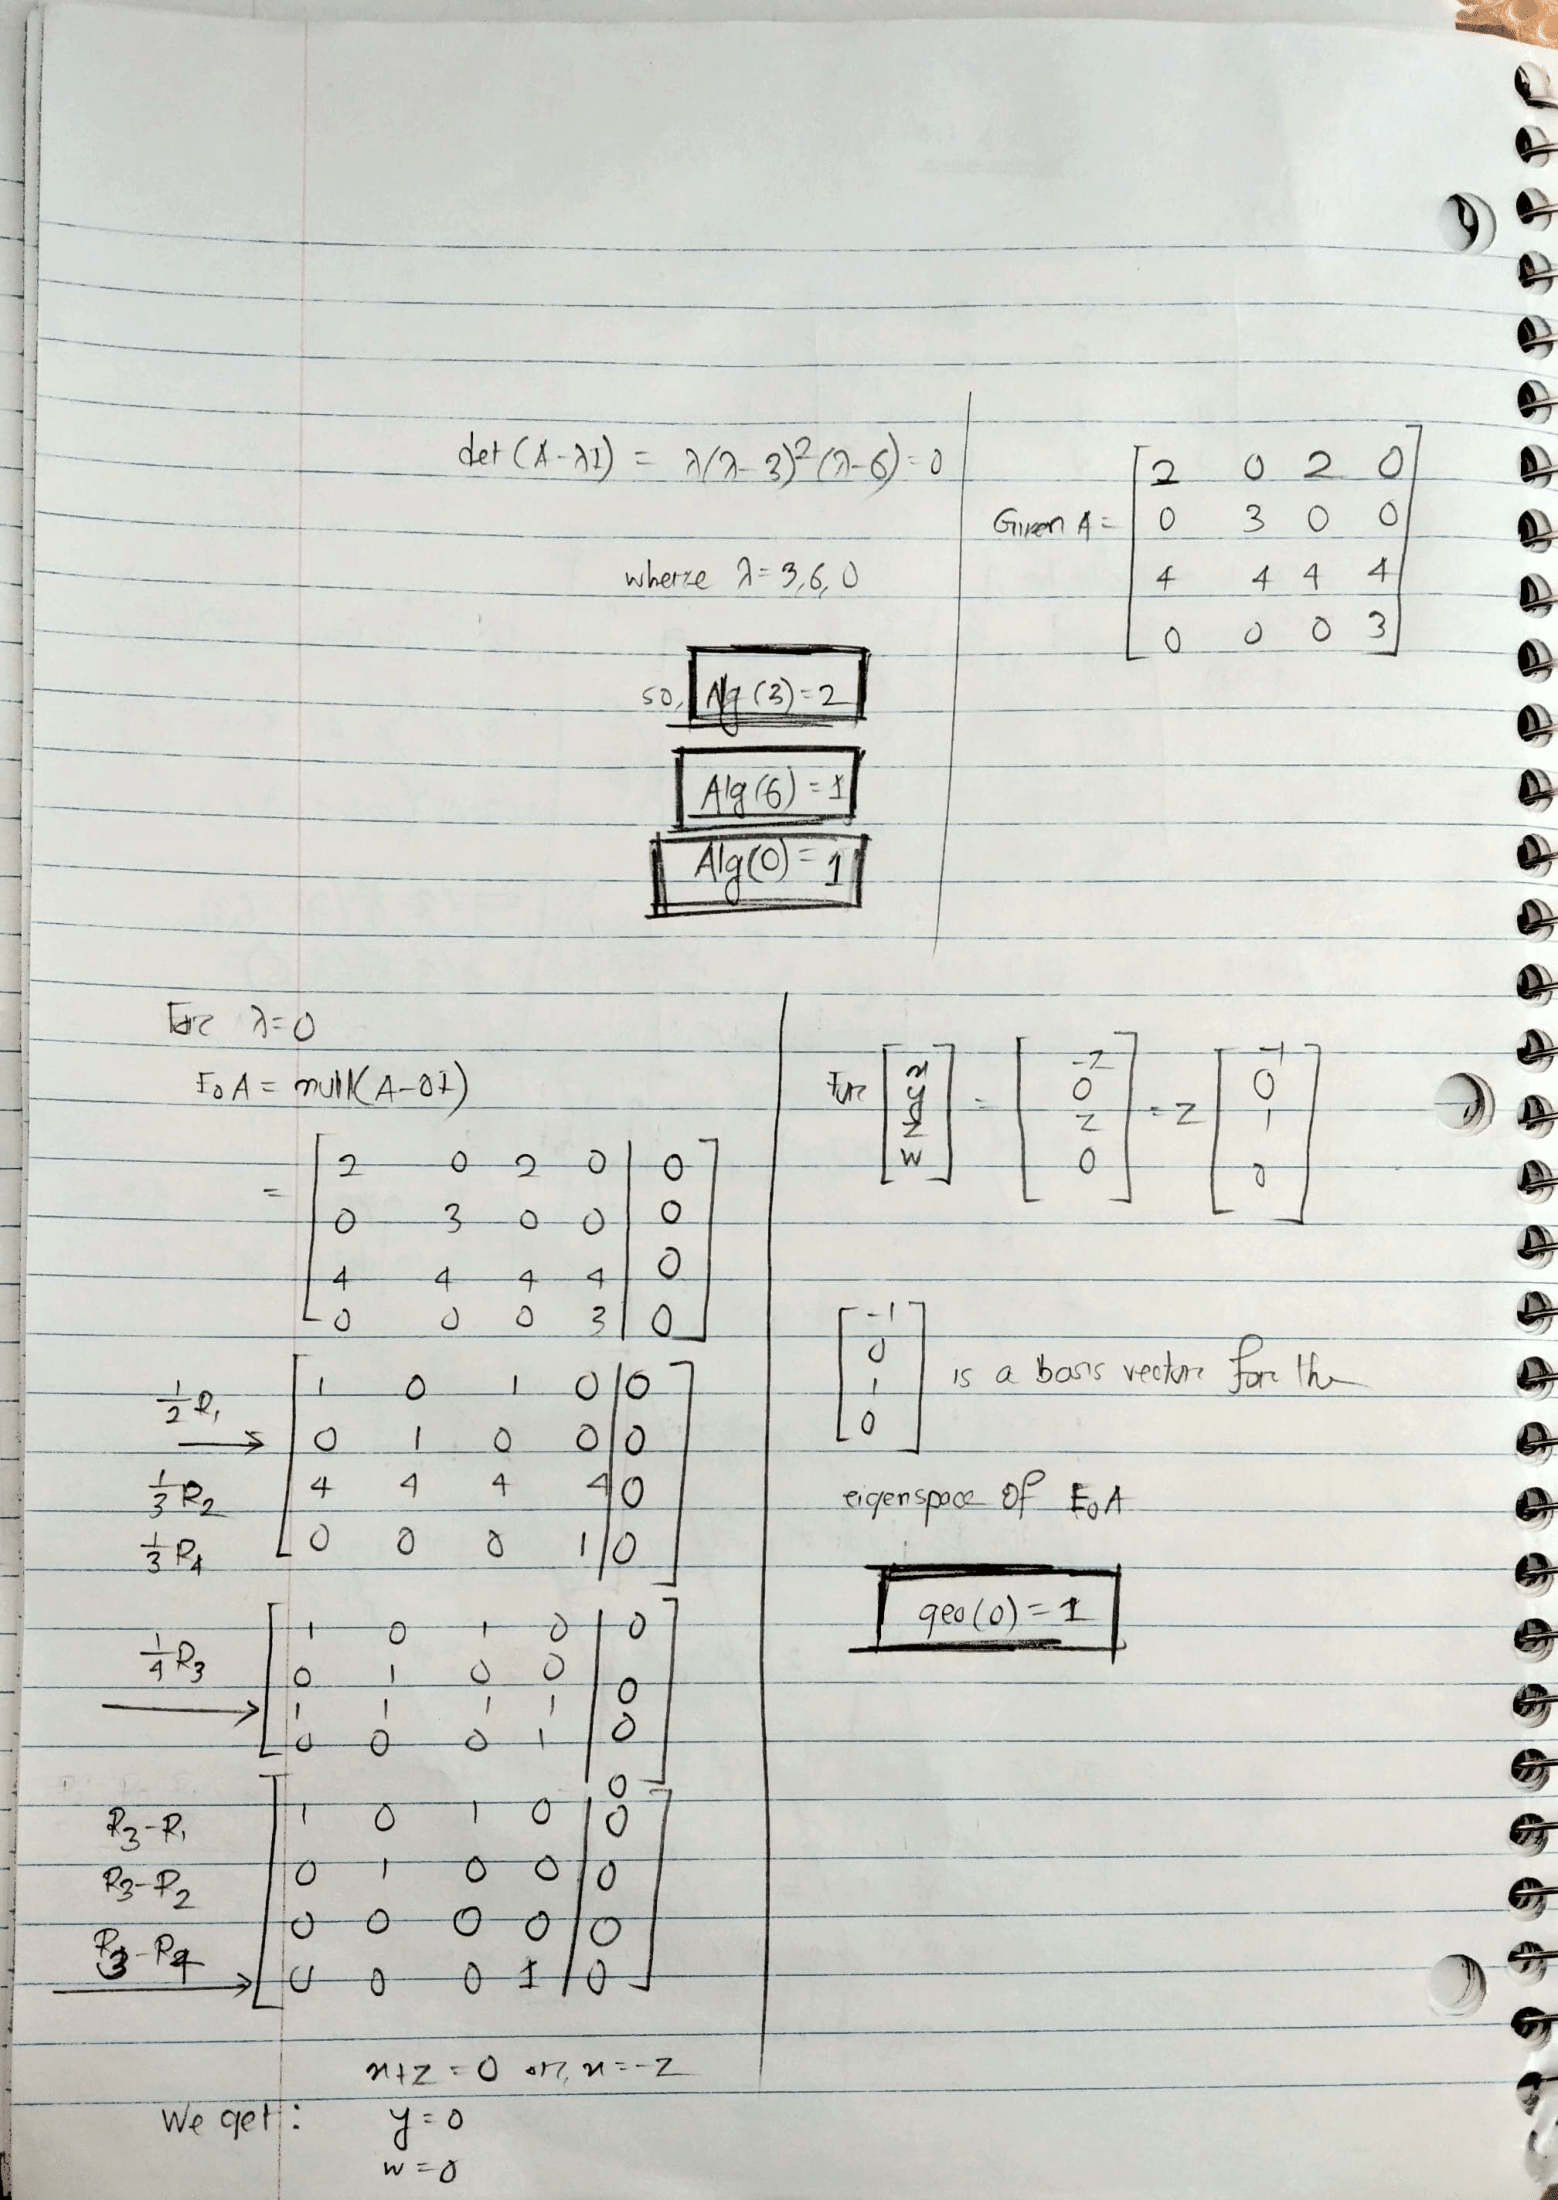 det (A-λI) = λ(λ-3)²(λ-6)=0
where λ=3,6,0
so, Alg (3)=2
Alg(6)=1
Alg(0)=1
Given A =
[2 0 2 0
0 3 0 0
4 4 4 4
0 0 0 3]
For λ=0
E₀A = null(A-0I)
= [2 0 2 0 | 0
0 3 0 0 | 0
4 4 4 4 | 0
0 0 0 3 | 0]
½R₁
→
⅓R₂
⅓R₄
[1 0 1 0 | 0
0 1 0 0 | 0
4 4 4 4 | 0
0 0 0 1 | 0]
¼R₃
→
[1 0 1 0 | 0
0 1 0 0 | 0
1 1 1 1 | 0
0 0 0 1 | 0]
R₃-R₁
R₃-R₂
R₃-R₄
→
[1 0 1 0 | 0
0 1 0 0 | 0
0 0 0 0 | 0
0 0 0 1 | 0]
x+z=0 or, x=-z
We get: y=0
w=0
For [x y z w] = [-z 0 z 0] = z [-1 0 1 0]
[-1
0
1
0] is a basis vector for the
eigenspace of E₀A
geo(0)=1